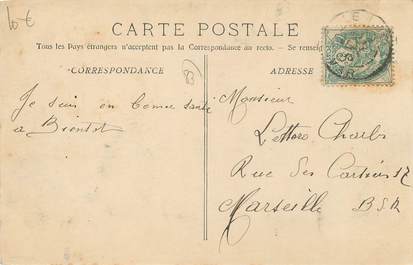 10 €
CARTE POSTALE
Tous les Pays étrangers n'acceptent pas la Correspondance au recto. - Se renseig
CORRESPONDANCE
ADRESSE
83
Je suis en bonne santé
a Bientot
Monsieur
Charles
Rue des 17
Marseille B.d.R